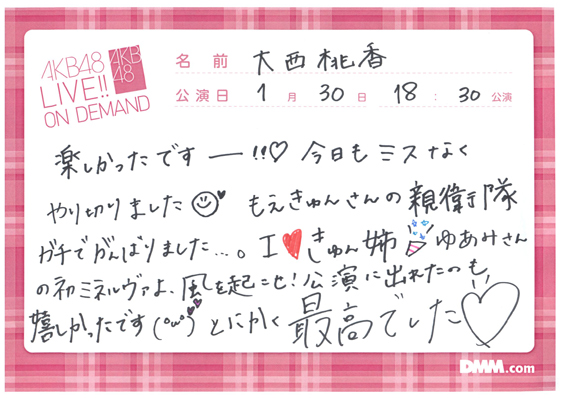 AKB48
LIVE!!
ON DEMAND
AKB
48
名前 大西桃香
公演日 1月30日 18:30公演
楽しかったですー!!♡ 今日もミスなく
やり切りました もえきゅんさんの親衛隊
ガチでがんばりました...。I♥きゅん姉 ゆあみさん
の初ミネルヴァよ、風を起こせ!公演に出れたのも
嬉しかったです(°ω°)♡ とにかく最高でした♡
DMM.com